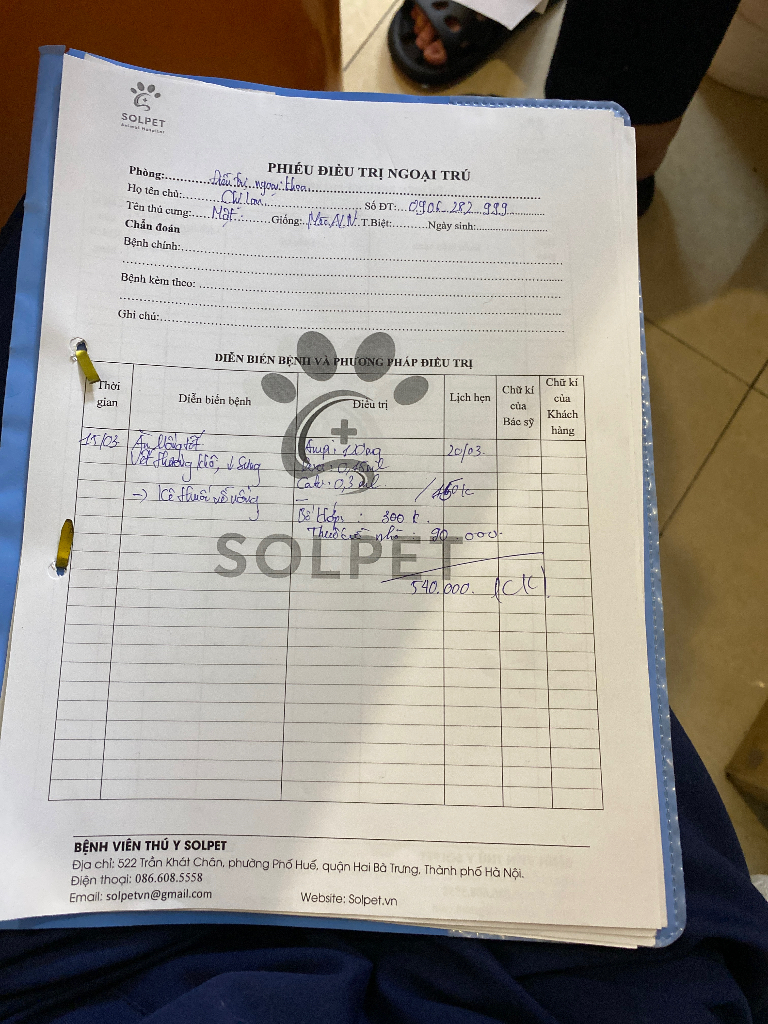 SOLPET
Animal Hospital
PHIẾU ĐIỀU TRỊ NGOẠI TRÚ
Phòng: Điều trị ngoại khoa
Họ tên chủ: Chị Lan Số ĐT: 0906 282 999
Tên thú cưng: Mật Giống: Mèo N.N. T.Biệt: Ngày sinh:
Chẩn đoán
Bệnh chính:
Bệnh kèm theo:
Ghi chú:
DIỄN BIẾN BỆNH VÀ PHƯƠNG PHÁP ĐIỀU TRỊ
Thời gian Diễn biến bệnh Điều trị Lịch hẹn Chữ kí của Bác sỹ Chữ kí của Khách hàng
15/03 Ăn uống tốt Ampi: 120mg 20/03
Vết thương khô, ↓ sưng
Cato: 0,3 ml / 150k
→ Kê thuốc về uống
: 300 k
Thuốc về nhà: 90.000
540.000 (CK)
SOLPET
BỆNH VIÊN THÚ Y SOLPET
Địa chỉ: 522 Trần Khát Chân, phường Phố Huế, quận Hai Bà Trưng, Thành phố Hà Nội.
Điện thoại: 086.608.5558
Email: solpetvn@gmail.com Website: Solpet.vn